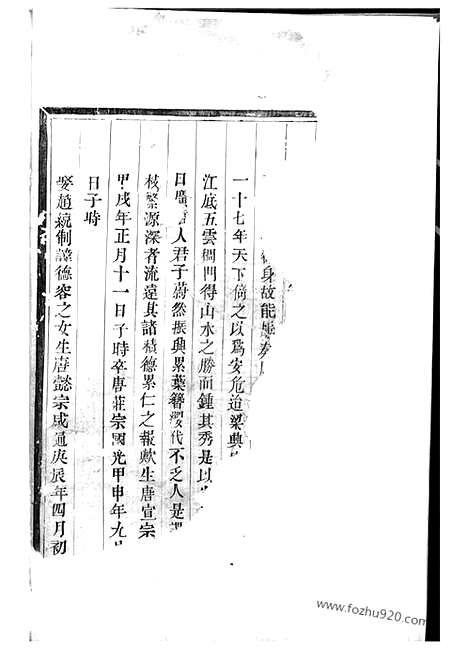 身故能
一十七年天下倚之以爲安危迨梁典
江底五雲橺門得山水之勝而鍾其秀是以
日廣人君子蔚然振興累葉簪纓代不乏人是
枝繁源深者流遠其諸積德累仁之報歟生唐宣宗
甲戌年正月十一日子時卒唐莊宗同光甲申年九
日子時
娶趙統制諱德容之女生唐懿宗咸通庚辰年四月初
www.fozhu920.com